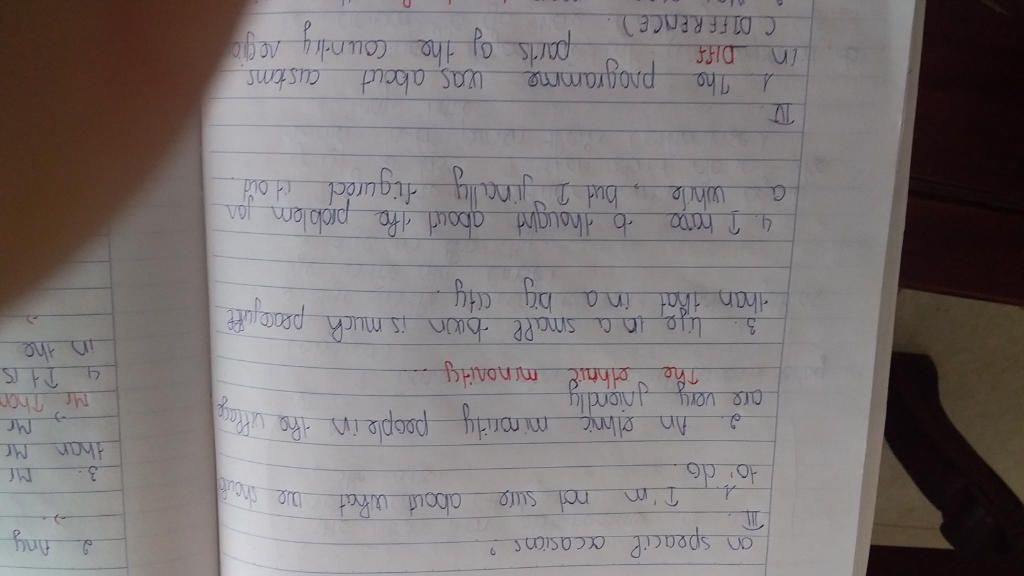 on speacil occasions?
III
1. I'm not sure about what we should
to do.
2. An ethnic minority people in the village
are very friendly
The ethnic minority ...
3. Life in a small town is much peacefull
than that in a big city.
4. I have to thought about the problem for
a while, but, I finally figured it out.
IV
1. The programme was about customs
in DIFF parts of the country regio
(DIFFERENCE).
2. Any
3. Mr
than Mr
→ Mr
Mr Than
4. It is
in the
→